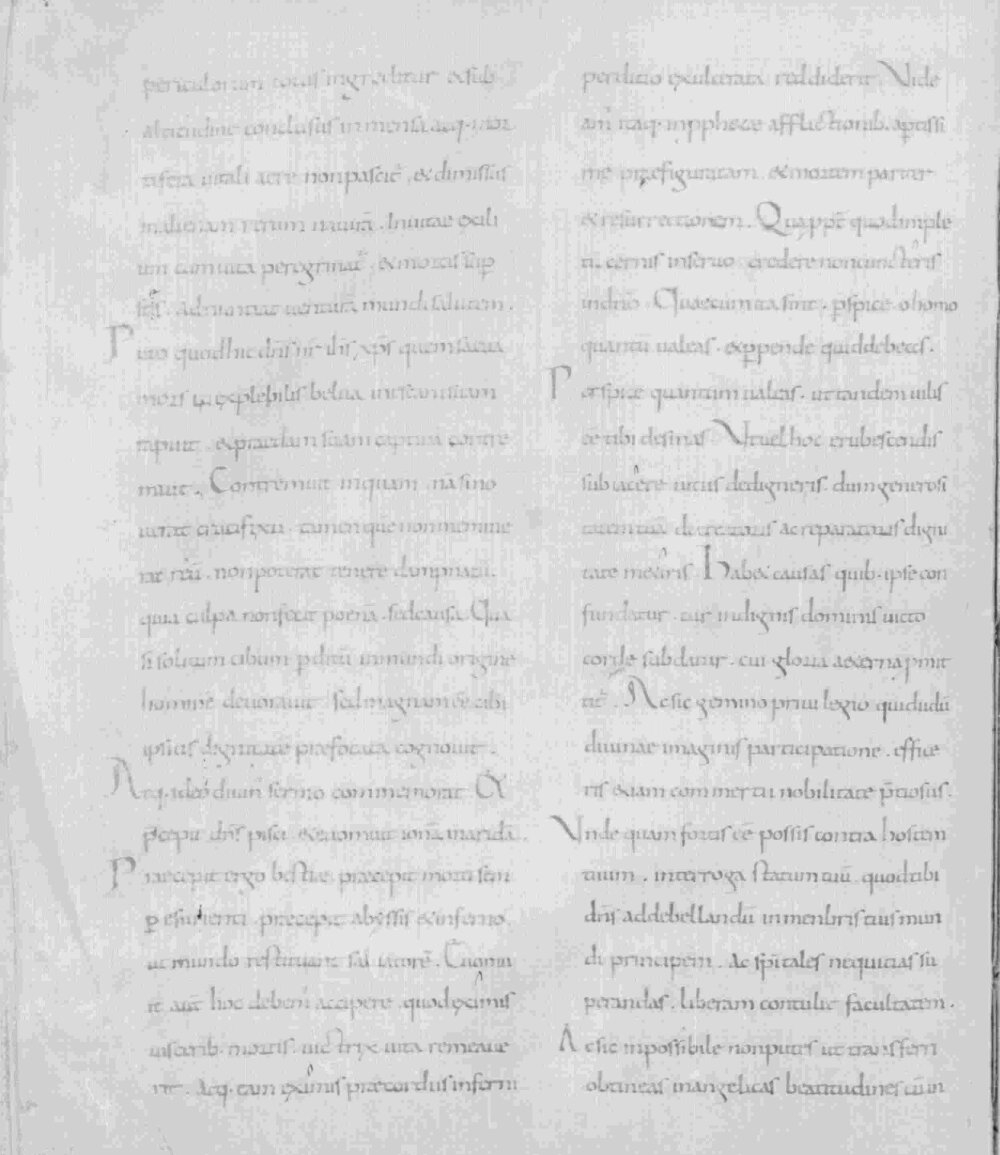 periculorum totus ingreditur & sub
altitudine conclusus inmensa atq. mor
tifera uitali aere non pascit̄, & dimissus
in alienam rerum naturā. In uitae exili
um cum uita peregrinat̄, & mortis
Adnuntiat uenturā mundi salutem.
Puto quod hic dn̄s nr̄ ih̄s xp̄s quem saeua
mors inexplebilis belua
rapuit. & praedam suam captiua contre
muit. Contremuit inquam, nā si no
uerat crucifixū. tamen que non memine
rat reū. non poterat tenere dampnatū.
quia culpa non fecit poenā. sed causa. Qua
si solitum cibum p̄ditū inmundi origine
hominē deuorauit sed magnum cibi
ipsius dignitate praefocata cognouit.
Atq. ideo diuin̄ sermo commemorat Et
p̄cepit dn̄s pisci & euomuit ionā in aridā.
Praecepit ergo bestiae praecepit morti
p̱ esurienti praecepit abyssis & inferno.
ut mundo restituant saluatorē. Euomu
it aut̄ hoc debem̄ accipere. quod eximis
uiscerib. mortis. uictrix uita remeaue
rit. Atq. tam eximis praecordiis inferni
perditio exulcerata reddiderit Vide
am̄ itaq. in pphete afflictionib. ap̱tissi
me praefiguratam. & mortem pariter
& resurrectionem. Quippē quod imple
ti. cernis in seruo credere non cuncteris
in dn̄o. Quae cum ita sint. p̱spice o homo
quantū ualeas. exp̱pende quid debees.
Perspice quantum ualeas. ut tandem uilis
ēe tibi desinas Vt uel hoc erubescendis
subiacere uitiis dedigneris. dum generosi
tatem tuā de creatoris ac reparatoris digni
tate metiris Habet causas quib. ipse con
fundatur. cur indignis dominis uicto
corde subdatur. cui gloria aeterna pmit
tit̄. Ac sic gemino priuilegio qui dudū
diuinae imaginis participatione. effice
ris etiam commertii nobilitate p̄tiosus.
Vnde quam fortis ēe possis contra hostem
tuum. interroga statum tuū. quod tibi
dn̄s ad debellandū in menbris tuis mun
di principem. Ac sp̄itales nequitias su
perandas. liberam contulit facultatem.
Ac sic inpossibile non putes ut transferri
obtineas in angelicas beatitudines cum